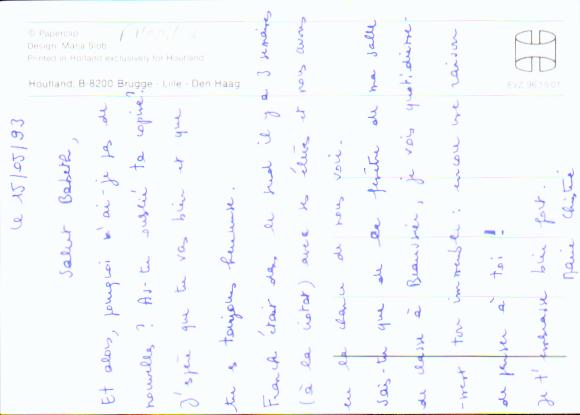 © Paperclip
Design: Maria Slob
Printed in Holland exclusively for Houtland
Houtland, B-8200 Brugge - Lille - Den Haag
EVZ 96.15.01
le 15/05/93
Salut Babeth,
Et alors, pourquoi n'ai-je pas de
nouvelles ? As-tu oublié ta copine ?
J'espère que tu vas bien et que
tu es toujours heureuse.
Franck était dans le sud il y a 3 semaines
(à la ciotat) avec ses élèves et nous avons
eu la chance de nous voir.
Sais-tu que de la fenêtre de ma salle
de classe à Beauvoisier, je vois quotidienne-
-ment ton immeuble : encore une raison
de penser à toi !
je t'embrasse bien fort.
Marie Christine